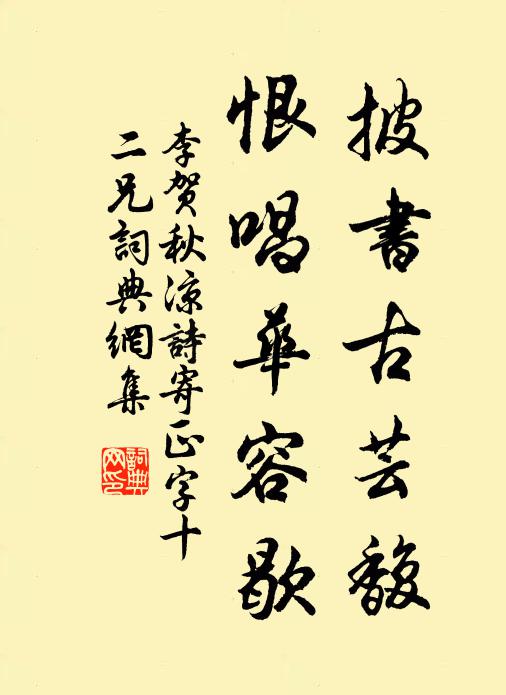 披書古芸馥
恨唱華容歇
李贺秋涼詩寄正字十
二兄詞典網集
詞典
网印